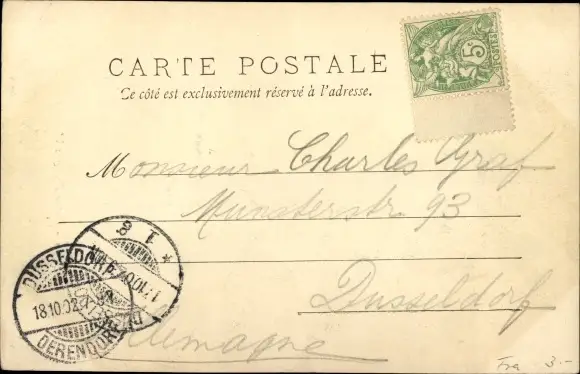 CARTE POSTALE
Ce côté est exclusivement réservé à l'adresse.
5
POSTES
Monsieur Charles Graf
Münsterstr 93
Dusseldorf
Allemagne
DUSSELDORF
18.10.02.7-
DERENDORF
1 8
Fra 3.-